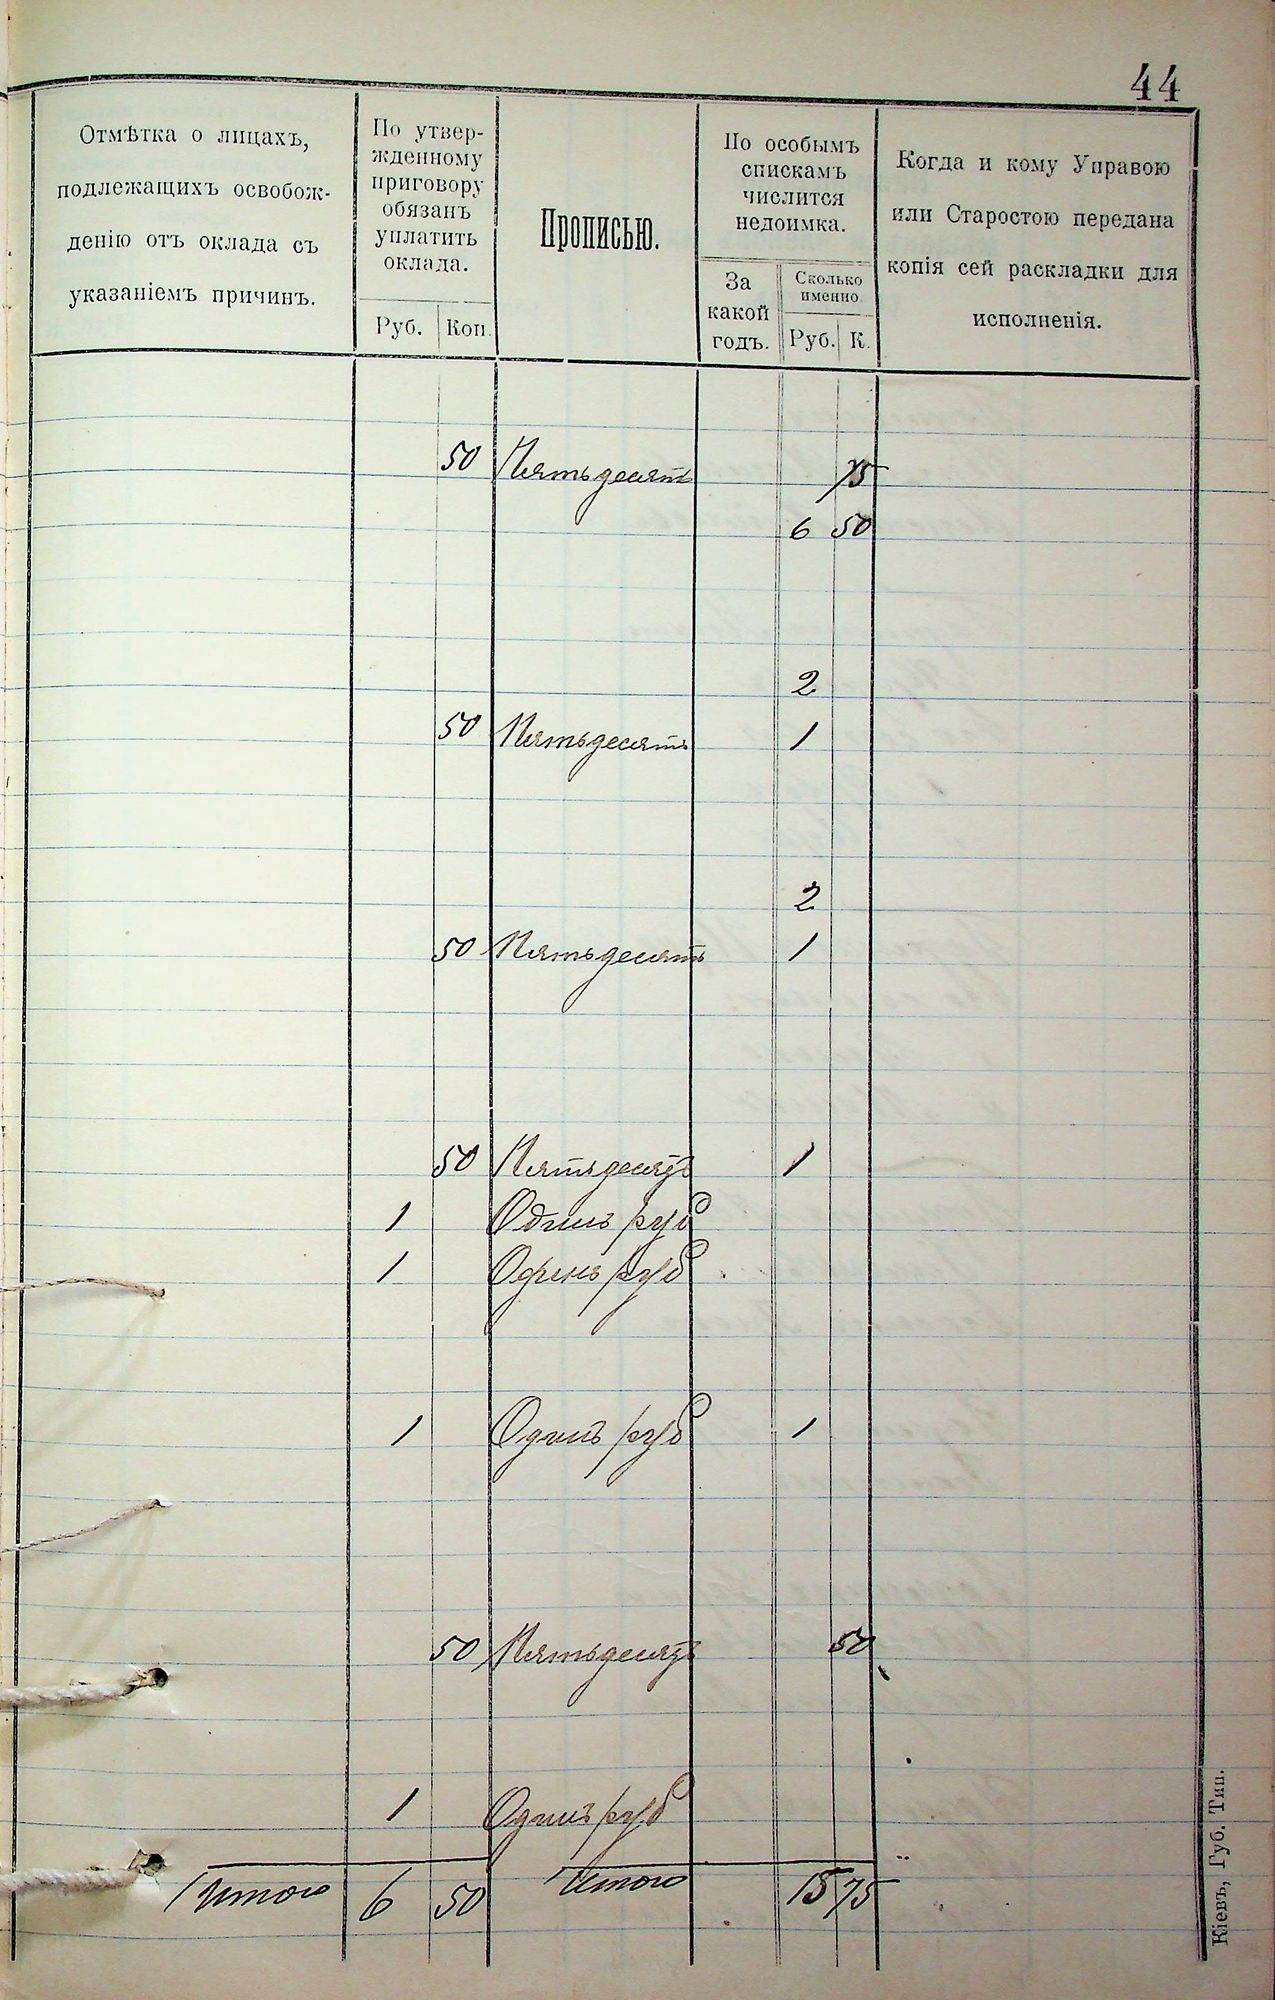 44
Отмѣтка о лицахъ,
подлежащихъ освобож-
денію отъ оклада съ
указаніемъ причинъ.
По утвер-
жденному
приговору
обязанъ
уплатить
оклада.
Руб. Коп.
Прописью.
По особымъ
спискамъ
числится
недоимка.
За
какой
годъ.
Сколько
именно
Руб. К.
Когда и кому Управою
или Старостою передана
копія сей раскладки для
исполненія.
50 Пятьдесятъ 75
6 50
2
50 Пятьдесятъ 1
2
50 Пятьдесятъ 1
50 Пятьдесятъ 1
1 Одинъ руб
1 Одинъ руб
1 Одинъ руб 1
50 Пятьдесятъ 50
1 Одинъ руб
Итого 6 50 Итого 15 75
Кіевъ, Губ. Тип.